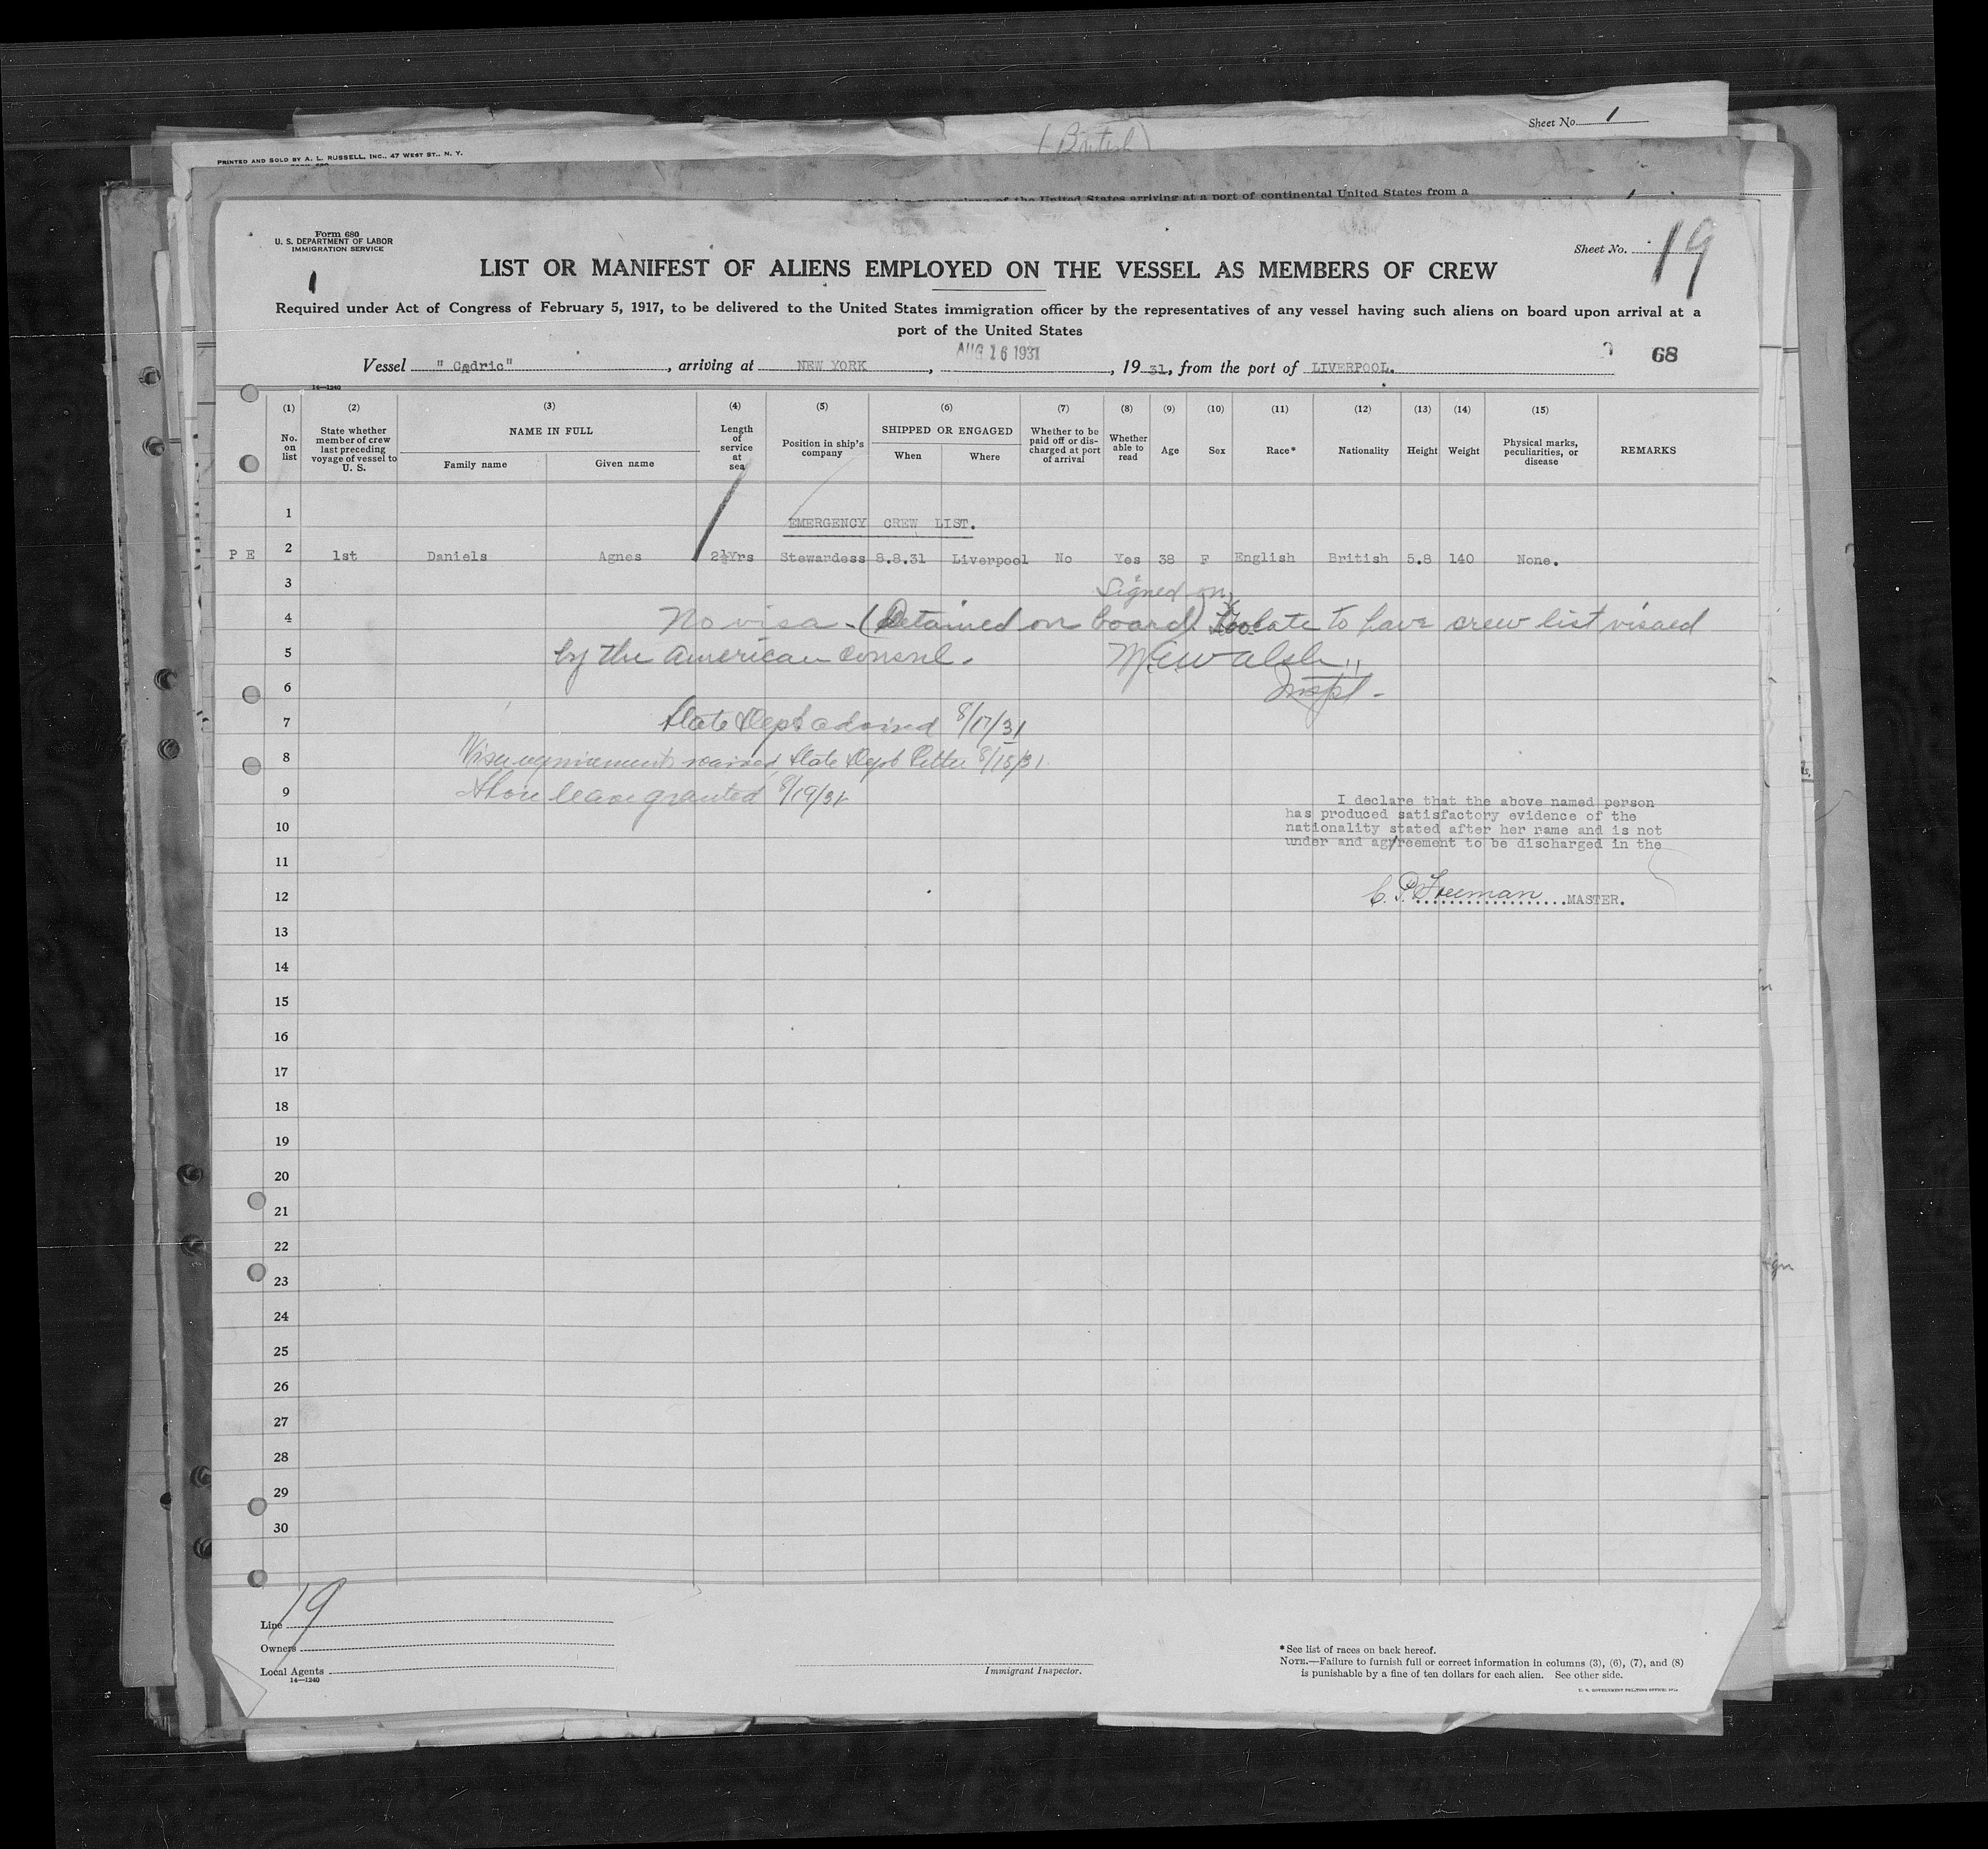 Sheet No. 1
PRINTED AND SOLD BY A. L. RUSSELL, INC., 47 WEST ST., N. Y.
(British)
the United States arriving at a port of continental United States from a
Form 680
U. S. DEPARTMENT OF LABOR
IMMIGRATION SERVICE
Sheet No. 19
1
LIST OR MANIFEST OF ALIENS EMPLOYED ON THE VESSEL AS MEMBERS OF CREW
Required under Act of Congress of February 5, 1917, to be delivered to the United States immigration officer by the representatives of any vessel having such aliens on board upon arrival at a
port of the United States
Vessel " Cedric" , arriving at NEW YORK , AUG 16 1931 , 19 31, from the port of LIVERPOOL. 68
14—1240
(1) (2) (3) (4) (5) (6) (7) (8) (9) (10) (11) (12) (13) (14) (15)
No. on list
State whether member of crew last preceding voyage of vessel to U. S.
NAME IN FULL
Family name
Given name
Length of service at sea
Position in ship's company
SHIPPED OR ENGAGED
When
Where
Whether to be paid off or discharged at port of arrival
Whether able to read
Age
Sex
Race*
Nationality
Height
Weight
Physical marks, peculiarities, or disease
REMARKS
1 EMERGENCY CREW LIST.
P E 2 1st Daniels Agnes 2½Yrs Stewardess 8.8.31 Liverpool No Yes 38 F English British 5.8 140 None.
3 Signed on
4 No visa. (Detained on board) Too late to have crew list visaed
5 by the American Consul. Walsh
6 Inspt.
7 State Dept advised 8/17/31
8 Visa requirements waived, State Dept Letter 8/18/31
9 Shore leave granted 8/19/31
I declare that the above named person
has produced satisfactory evidence of the
nationality stated after her name and is not
under and agreement to be discharged in the
10
11
12
C. P. Freeman MASTER.
13
14
15
16
17
18
19
20
21
22
23
24
25
26
27
28
29
30
19
Line
Owners
Local Agents
14—1240
Immigrant Inspector.
*See list of races on back hereof.
NOTE.—Failure to furnish full or correct information in columns (3), (6), (7), and (8)
is punishable by a fine of ten dollars for each alien. See other side.